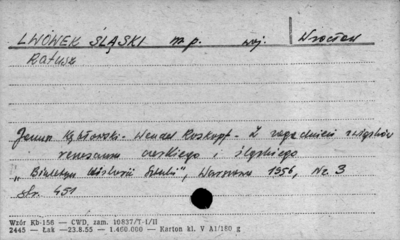 LWÓWEK ŚLĄSKI m.p. woj. Wrocław
Ratusz
Janina Kębłowski - Wendel Roskopf - Z zagadnień związków
renesansu czeskiego i śląskiego
„Biuletyn Historii Sztuki", Warszawa 1956, Nr. 3
str. 451
Wzór Kb-156 — CWD, zam. 10837/T-I/II
2445 — Łsk —23.8.55 — 1.460.000 — Karton kl. V A1/180 g